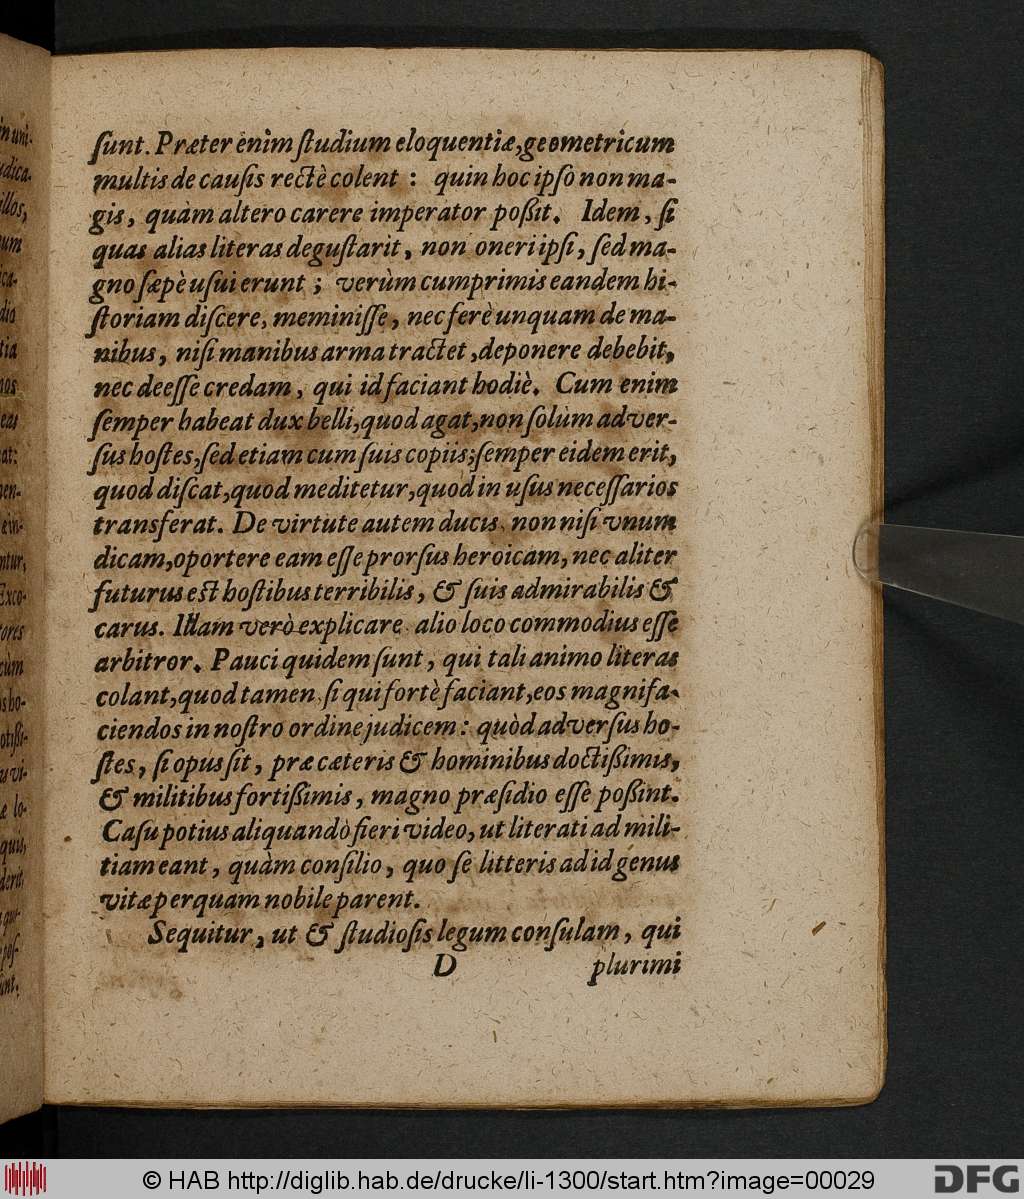 ſunt. Præter enim ſtudium eloquentiæ, geometricum
multis de cauſis rectè colent : quin hoc ipſo non ma-
gis, quàm altero carere imperator poßit. Idem, ſi
quas alias literas deguſtarit, non oneri ipſi, ſed ma-
gno ſæpè uſui erunt ; verùm cumprimis eandem hi-
ſtoriam diſcere, meminiſſe, nec ferè unquam de ma-
nibus, niſi manibus arma tractet, deponere debebit,
nec deeſſe credam, qui id faciant hodiè. Cum enim
ſemper habeat dux belli, quod agat, non ſolùm adver-
ſus hoſtes, ſed etiam cum ſuis copiis; ſemper eidem erit,
quod diſcat, quod meditetur, quod in uſus neceſſarios
transferat. De virtute autem ducis non niſi vnum
dicam, oportere eam eſſe prorſus heroicam, nec aliter
futurus eſt hoſtibus terribilis, & ſuis admirabilis &
carus. Illam verò explicare alio loco commodius eſſe
arbitror. Pauci quidem ſunt, qui tali animo literas
colant, quod tamen ſi qui fortè faciant, eos magnifa-
ciendos in noſtro ordine judicem: quòd adverſus ho-
ſtes, ſi opus ſit, præ cæteris & hominibus doctißimis,
& militibus fortißimis, magno præſidio eſſe poßint.
Caſu potius aliquandò fieri video, ut literati ad mili-
tiam eant, quàm conſilio, quo ſe litteris ad id genus
vitæ perquam nobile parent.
Sequitur, ut & ſtudioſis legum conſulam, qui
D plurimi
© HAB http://diglib.hab.de/drucke/li-1300/start.htm?image=00029
DFG